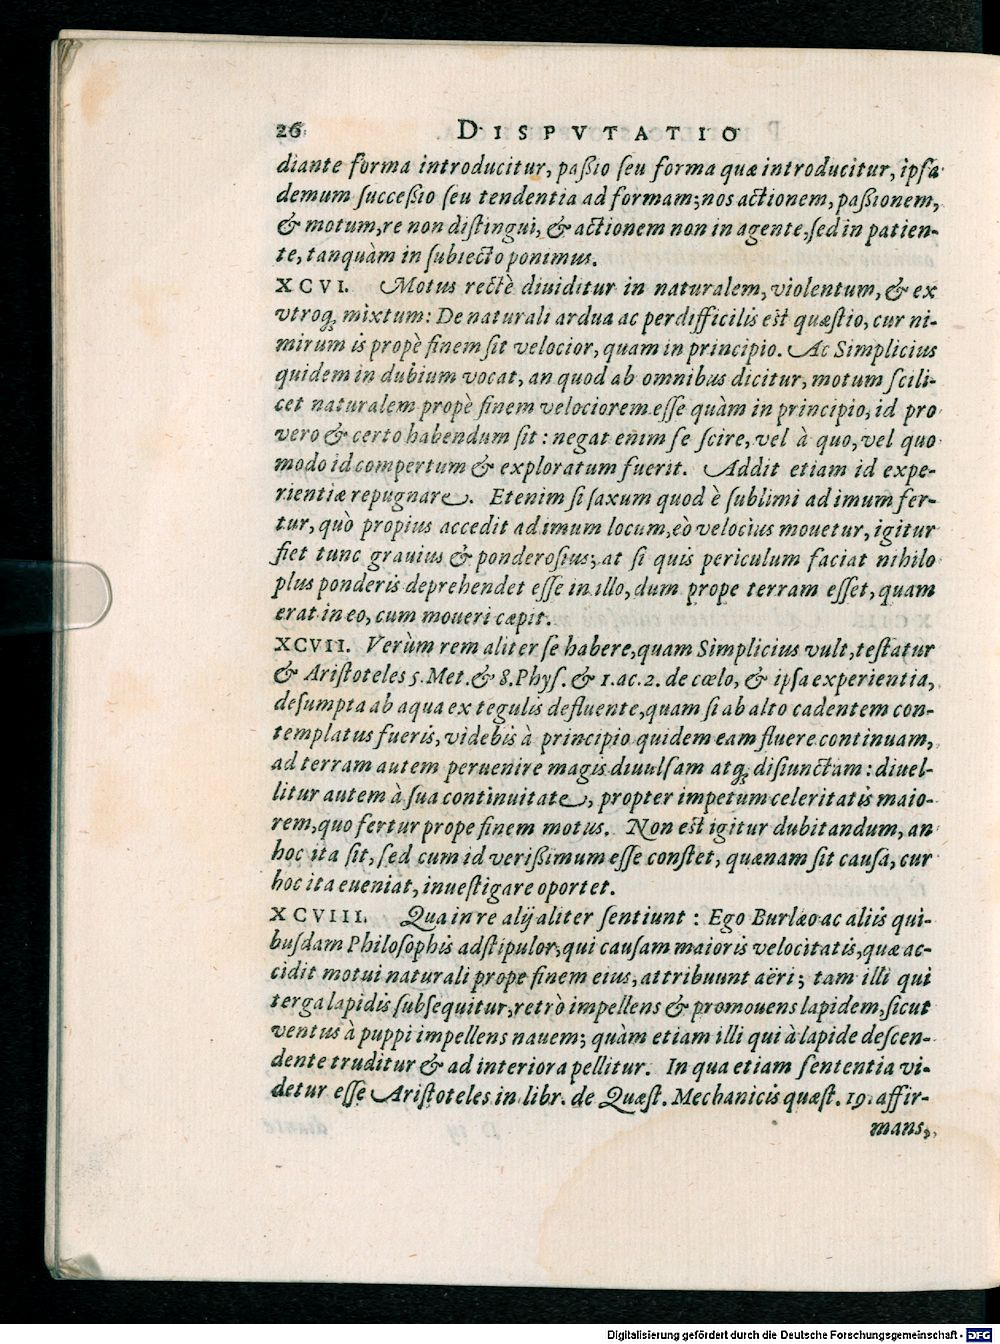 26 DISPVTATIO
diante forma introducitur, paßio ſeu forma quæ introducitur, ipſa
demum ſucceßio ſeu tendentia ad formam; nos actionem, paßionem,
& motum, re non diſtingui, & actionem non in agente, ſed in patien-
te, tanquàm in ſubiecto ponimus.
XCVI. Motus rectè diuiditur in naturalem, violentum, & ex
vtroq; mixtum: De naturali ardua ac perdifficilis eſt quæſtio, cur ni-
mirum is propè finem ſit velocior, quam in principio. Ac Simplicius
quidem in dubium vocat, an quod ab omnibus dicitur, motum ſcili-
cet naturalem propè finem velociorem eſſe quàm in principio, id pro
vero & certo habendum ſit: negat enim ſe ſcire, vel à quo, vel quo
modo id compertum & exploratum fuerit. Addit etiam id expe-
rientiæ repugnare. Etenim ſi ſaxum quod è ſublimi ad imum fer-
tur, quò propius accedit ad imum locum, eò velocius mouetur, igitur
fiet tunc grauius & ponderoſius; at ſi quis periculum faciat nihilo
plus ponderis deprehendet eſſe in illo, dum prope terram eſſet, quam
erat in eo, cum moueri cæpit.
XCVII. Verùm rem aliter ſe habere, quam Simplicius vult, teſtatur
& Ariſtoteles 5. Met. & 8. Phyſ. & 1. ac. 2. de cœlo, & ipſa experientia,
deſumpta ab aqua ex tegulis defluente, quam ſi ab alto cadentem con-
templatus fueris, videbis à principio quidem eam fluere continuam,
ad terram autem peruenire magis diuulſam atq; diſiunctam: diuel-
litur autem à ſua continuitate, propter impetum celeritatis maio-
rem, quo fertur prope finem motus. Non eſt igitur dubitandum, an
hoc ita ſit, ſed cum id verißimum eſſe conſtet, quænam ſit cauſa, cur
hoc ita eueniat, inueſtigare oportet.
XCVIII. Qua in re alij aliter ſentiunt: Ego Burlæo ac aliis qui-
buſdam Philoſophis adſtipulor, qui cauſam maioris velocitatis, quæ ac-
cidit motui naturali prope finem eius, attribuunt aëri; tam illi qui
terga lapidis ſubſequitur, retrò impellens & promouens lapidem, ſicut
ventus à puppi impellens nauem; quàm etiam illi qui à lapide deſcen-
dente truditur & ad interiora pellitur. In qua etiam ſententia vi-
detur eſſe Ariſtoteles in libr. de Quæſt. Mechanicis quæſt. 19. affir-
mans,
Digitalisierung gefördert durch die Deutsche Forschungsgemeinschaft - DFG